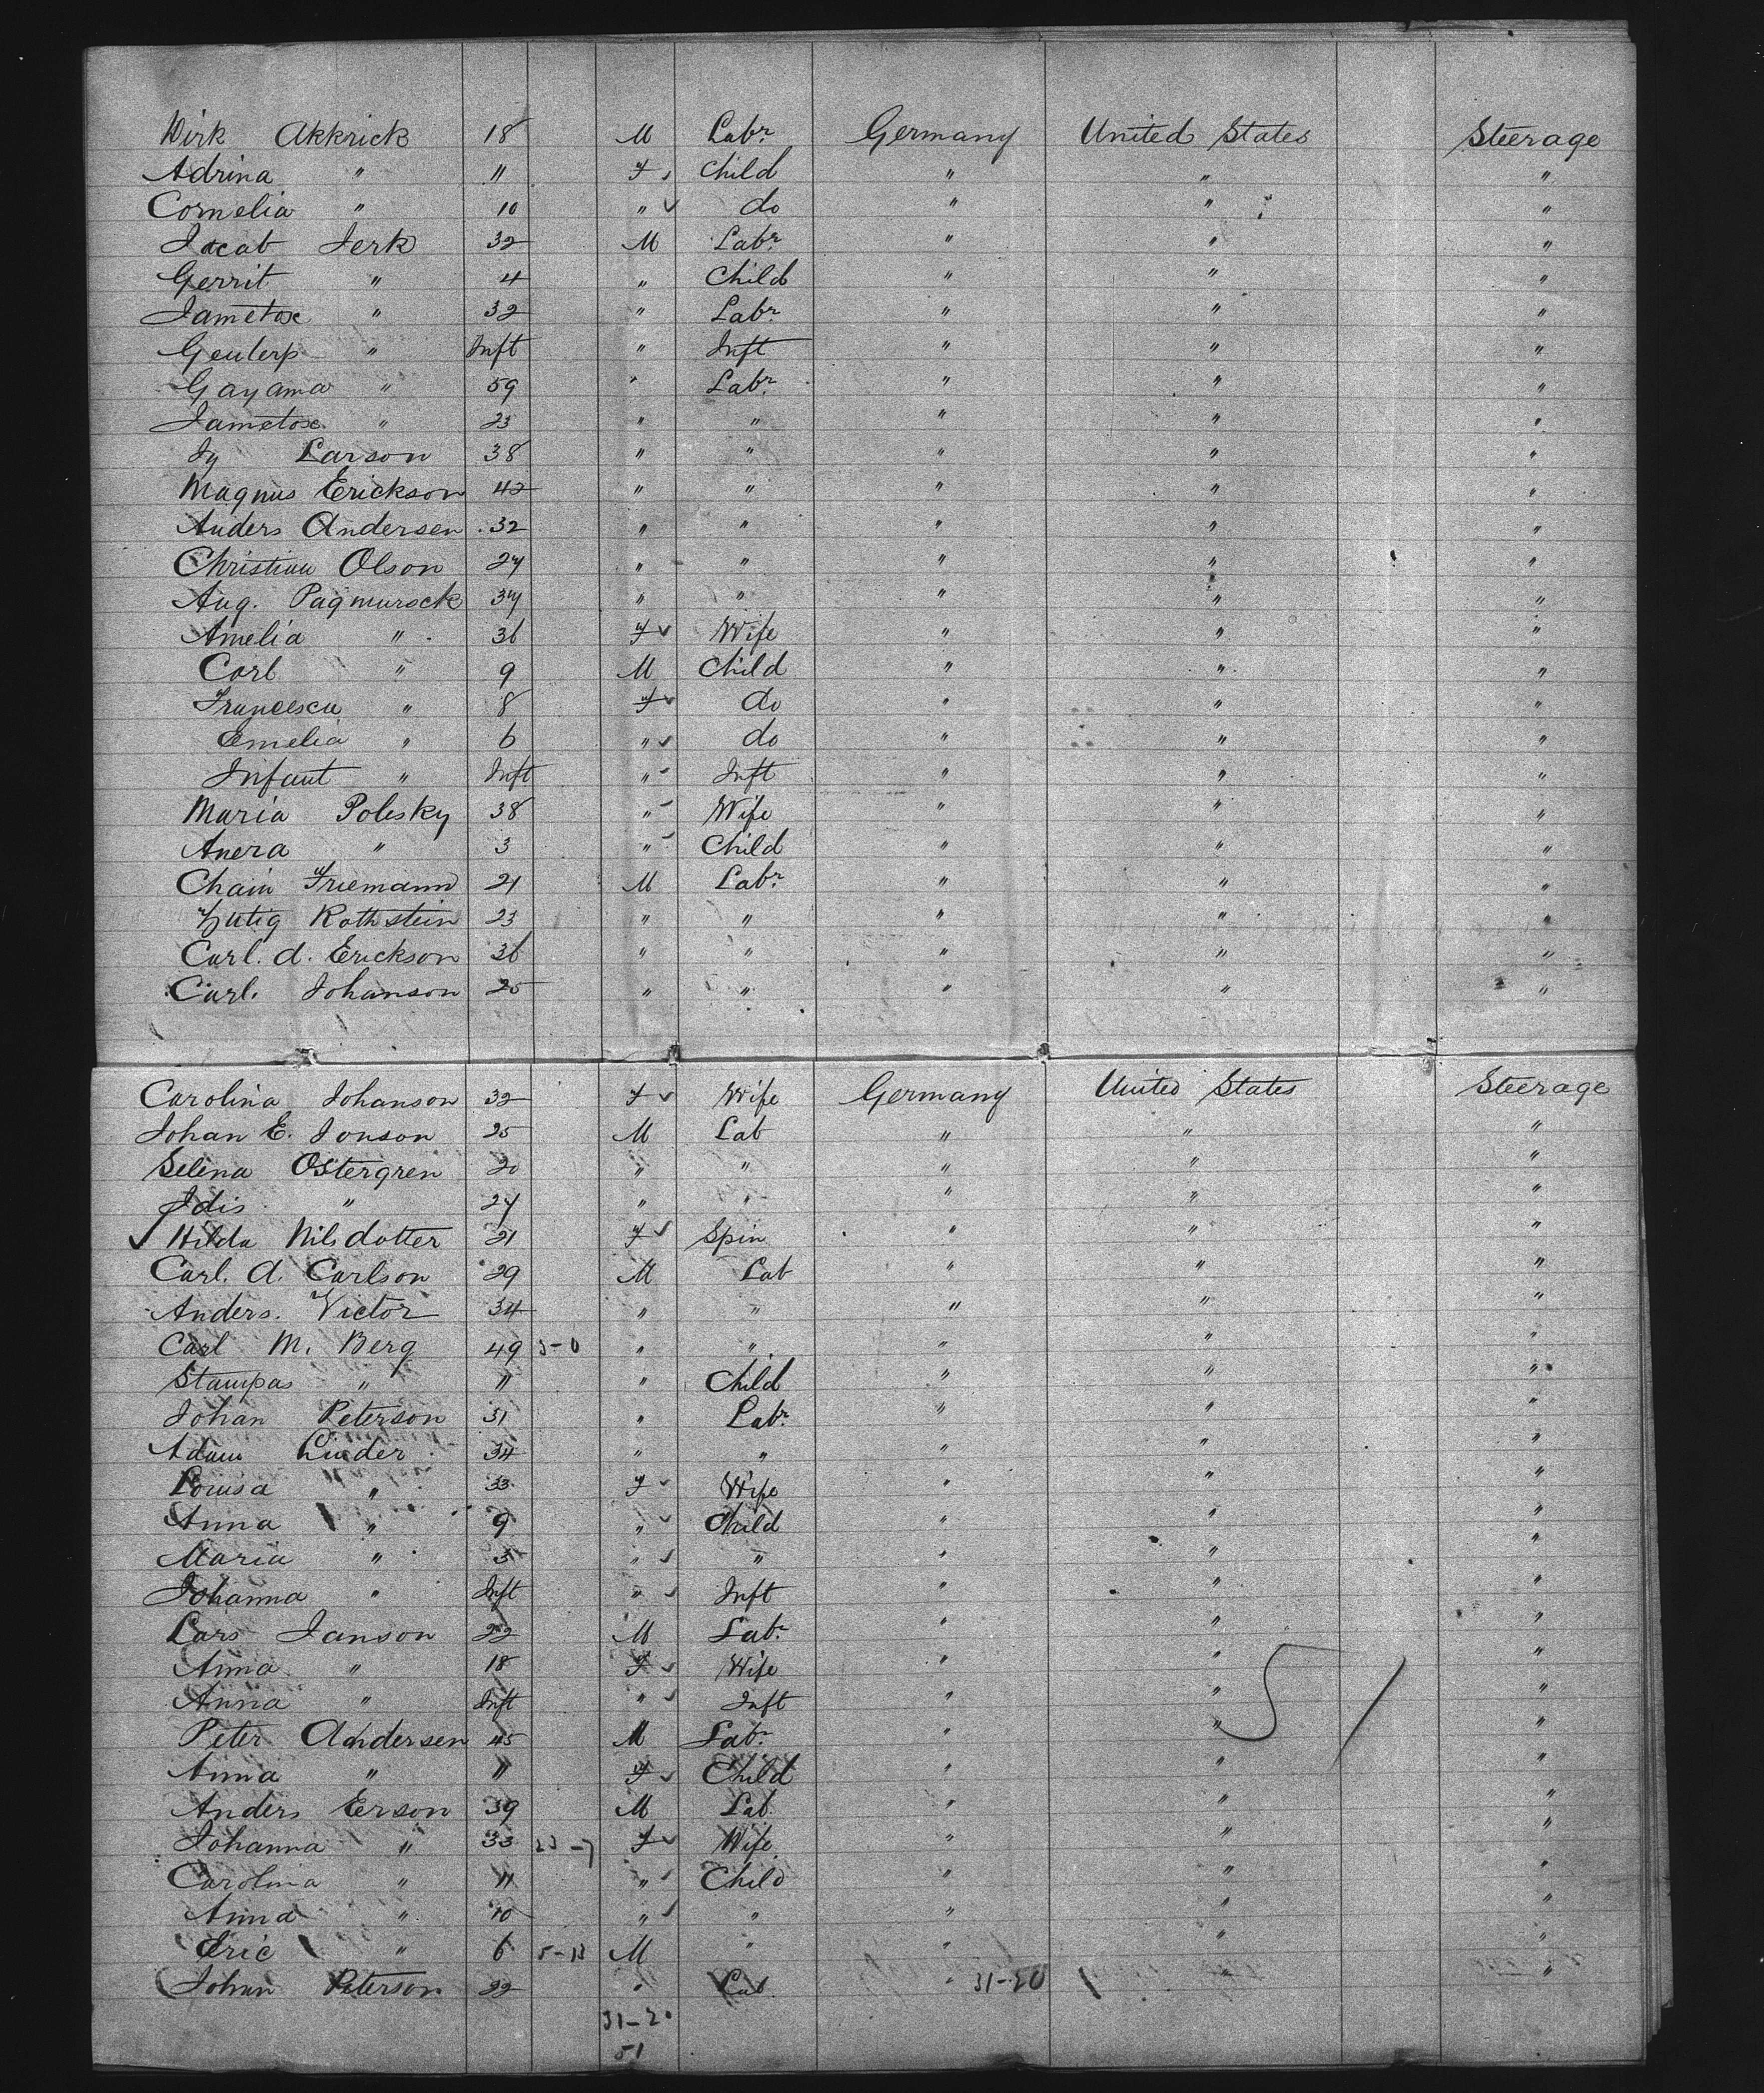 Dirk Akkrick 18 M Labr Germany United States Steerage
Adrina " 11 F Child " " "
Cornelia " 10 " do " " "
Jacob Jerk 32 M Labr " " "
Gerrit " 4 " Child " " "
Jametose " 32 " Labr " " "
Geulerp " Inft " Inft " " "
Gayama " 59 " Labr " " "
Jametose " 23 " " " " "
Jy Larson 38 " " " " "
Magnus Erickson 42 " " " " "
Anders Andersen 32 " " " " "
Christian Olson 24 " " " " "
Aug. Pagmurock 34 " " " " "
Amelia " 36 F Wife " " "
Carl " 9 M Child " " "
Francesca " 8 F do " " "
Emelia " 6 " do " " "
Infant " Inft " Inft " " "
Maria Polesky 38 " Wife " " "
Anera " 3 " Child " " "
Chain Friemann 21 M Labr " " "
Rothstein 23 " " " " "
Carl. A. Erickson 36 " " " " "
Carl. Johanson 25 " " " " "
Carolina Johanson 32 F Wife Germany United States Steerage
Johan E. Jonson 25 M Lab " " "
Selina Ostergren 20 " " " " "
Idis " 24 " " " " "
Hilda Nilsdotter 21 F Spin " " "
Carl. A. Carlson 29 M Lab " " "
Anders. Victor 34 " " " " "
Carl M. Berg 49 5-0 " " " " "
Stampas " 11 " Child " " "
Johan Peterson 31 " Labr " " "
Adam Linder 34 " " " " "
Louisa " 33 F Wife " " "
Anna " 9 " Child " " "
Maria " 3 " " " " "
Johanna " Inft " Inft " " "
Lars Janson 22 M Labr " " "
Anna " 18 F Wife " " "
Anna " Inft " Inft " " "
Peter Andersen 45 M Labr " " "
Anna " 11 F Child " " "
Anders Erson 39 M Lab " " "
Johanna " 33 23-7 F Wife " " "
Carolina " 11 " Child " " "
Anna " 10 " " " " "
Eric " 6 5-13 M " " " "
Johan Peterson 22 " Lab " 31-20 " "
31-20
51